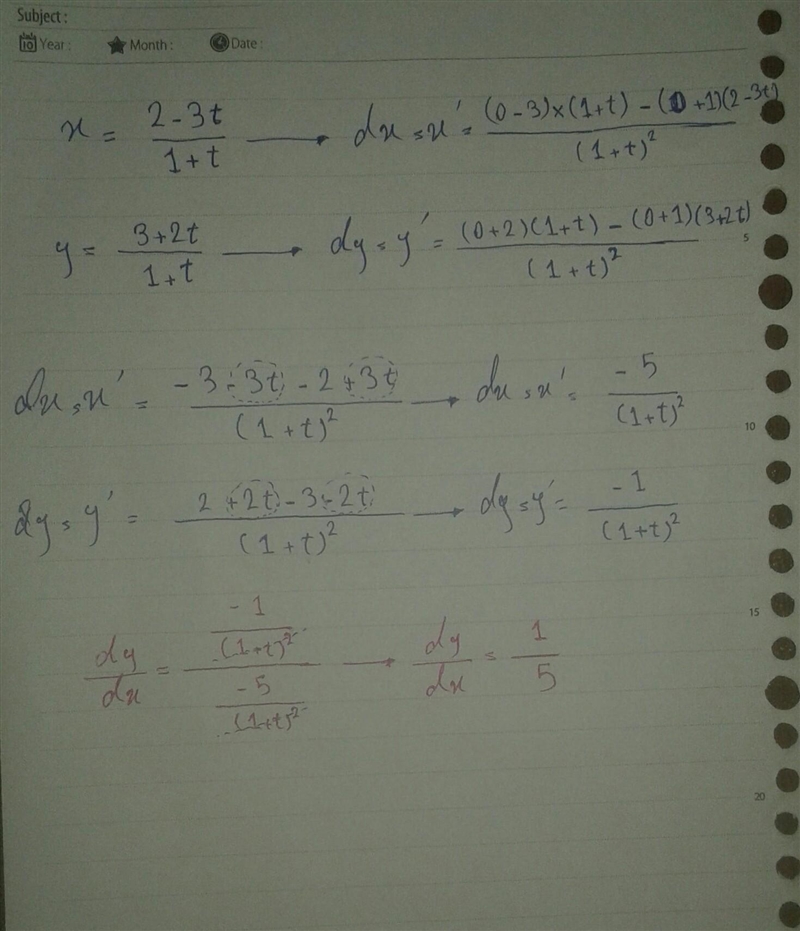 Subject :
Year : Month : Date :
x = (2 - 3t)/(1 + t) → dx = x' = ((0 - 3)×(1+t) - (0+1)(2-3t))/(1+t)²
y = (3+2t)/(1+t) → dy = y' = ((0+2)(1+t) - (0+1)(3+2t))/(1+t)²
5
dx = x' = (-3 -3t - 2 +3t)/(1+t)² → dx = x' = -5/(1+t)²
10
dy = y' = (2 +2t - 3 -2t)/(1+t)² → dy = y' = -1/(1+t)²
dy/dx = (-1/(1+t)²)/(-5/(1+t)²) → dy/dx = 1/5
15
20